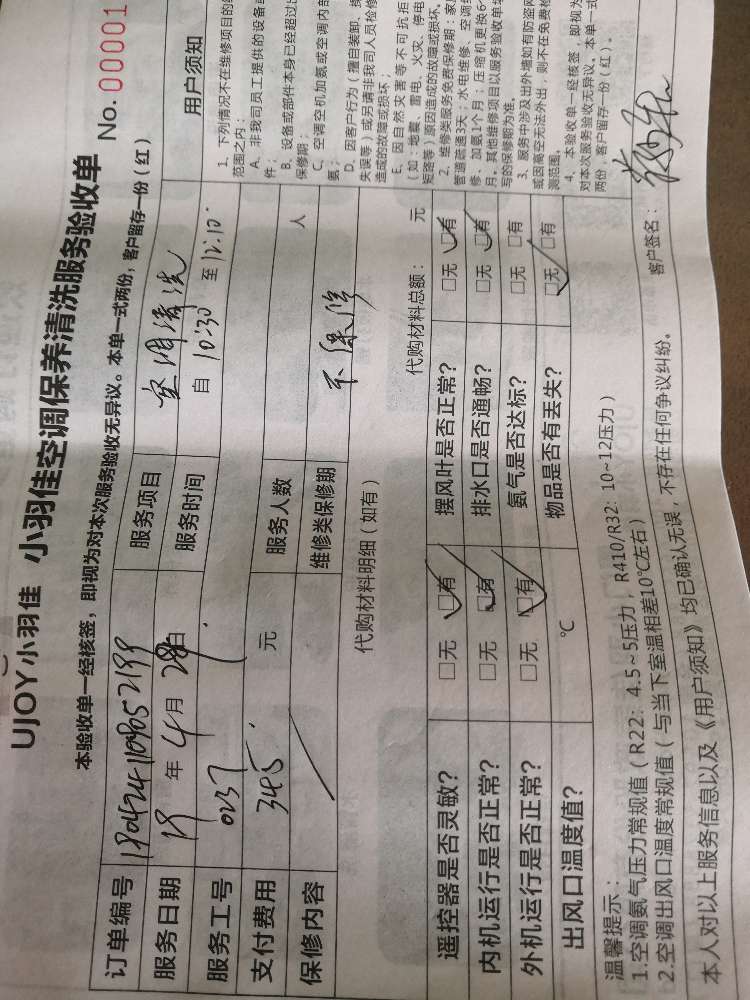 UJOY小羽佳 小羽佳空调保养清洗服务验收单
No. 00001
本验收单一经核签，即视为对本次服务验收无异议。本单一式两份，客户留存一份（红）
订单编号 1804241109052199 服务项目 空调清洗
服务日期 18 年 4 月 28 日 服务时间 自 10:30 至 12:10
服务工号 0237
支付费用 345 元 服务人数 人
保修内容 维修类保修期 不保修
代购材料明细（如有） 代购材料总额： 元
遥控器是否灵敏？ □无 □有 摆风叶是否正常？ □无 □有
内机运行是否正常？ □无 □有 排水口是否通畅？ □无 □有
外机运行是否正常？ □无 □有 氨气是否达标？ □无 □有
出风口温度值？ ℃ 物品是否有丢失？ □无 □有
用户须知
1. 下列情况不在维修项目的
范围之内：
A. 非我司员工提供的设备或
件；
B. 设备或部件本身已经超过
保修期；
C. 空调空机加氨或空调内部
氨；
D. 因客户行为（擅自装卸、
失误等）或另请非我司人员检修
造成的故障或损坏；
E. 因自然灾害等不可抗拒
（如：地震、雷电、火灾、停电
短路等）原因造成的故障或损坏。
2. 维修类服务免费保修期：家
管道疏通3天；水电维修、空调
修、加氨1个月；压缩机更换6
月。其他维修项目以服务验收单
写的保修期为准。
3. 服务中涉及出外墙如有防盗网
或因高空无法外出，则不在免费检
测范围。
4. 本验收单一经核签，即视为
对本次服务验收无异议。本单一式
两份，客户留存一份（红）。
温馨提示：
1.空调氨气压力常规值（R22：4.5~5压力，R410/R32：10~12压力）
2.空调出风口温度常规值（与当下室温相差10℃左右）
本人对以上服务信息以及《用户须知》均已确认无误，不存在任何争议纠纷。
客户签名：